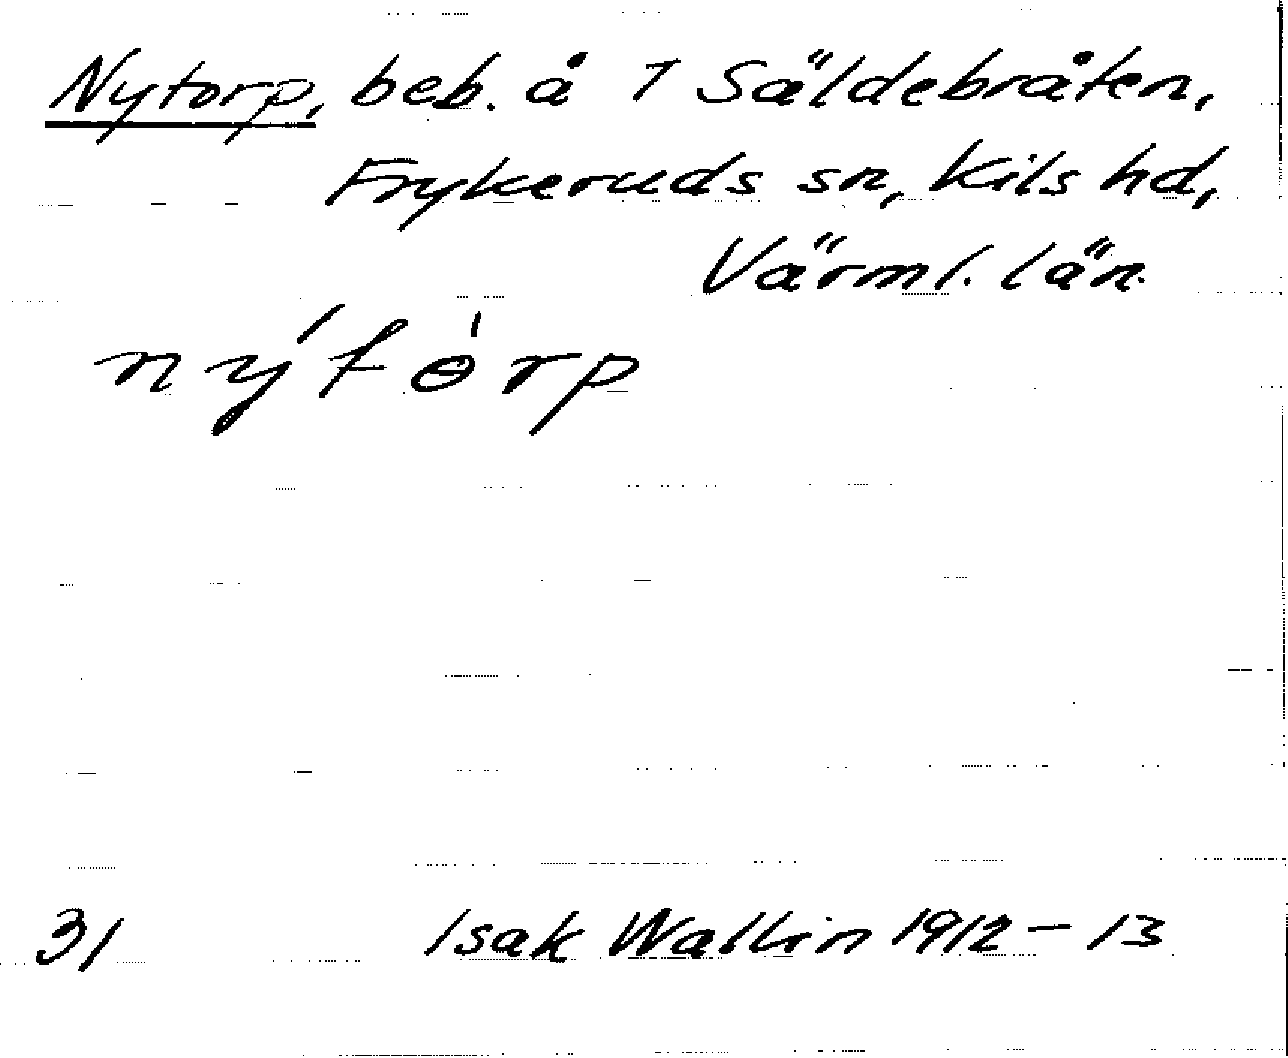 Nytorp, beb. å 1 Säldebråten,
Frykeruds sn, Kils hd,
Värml. län.
nýtɵ̀rp
31 Isak Wallin 1912-13